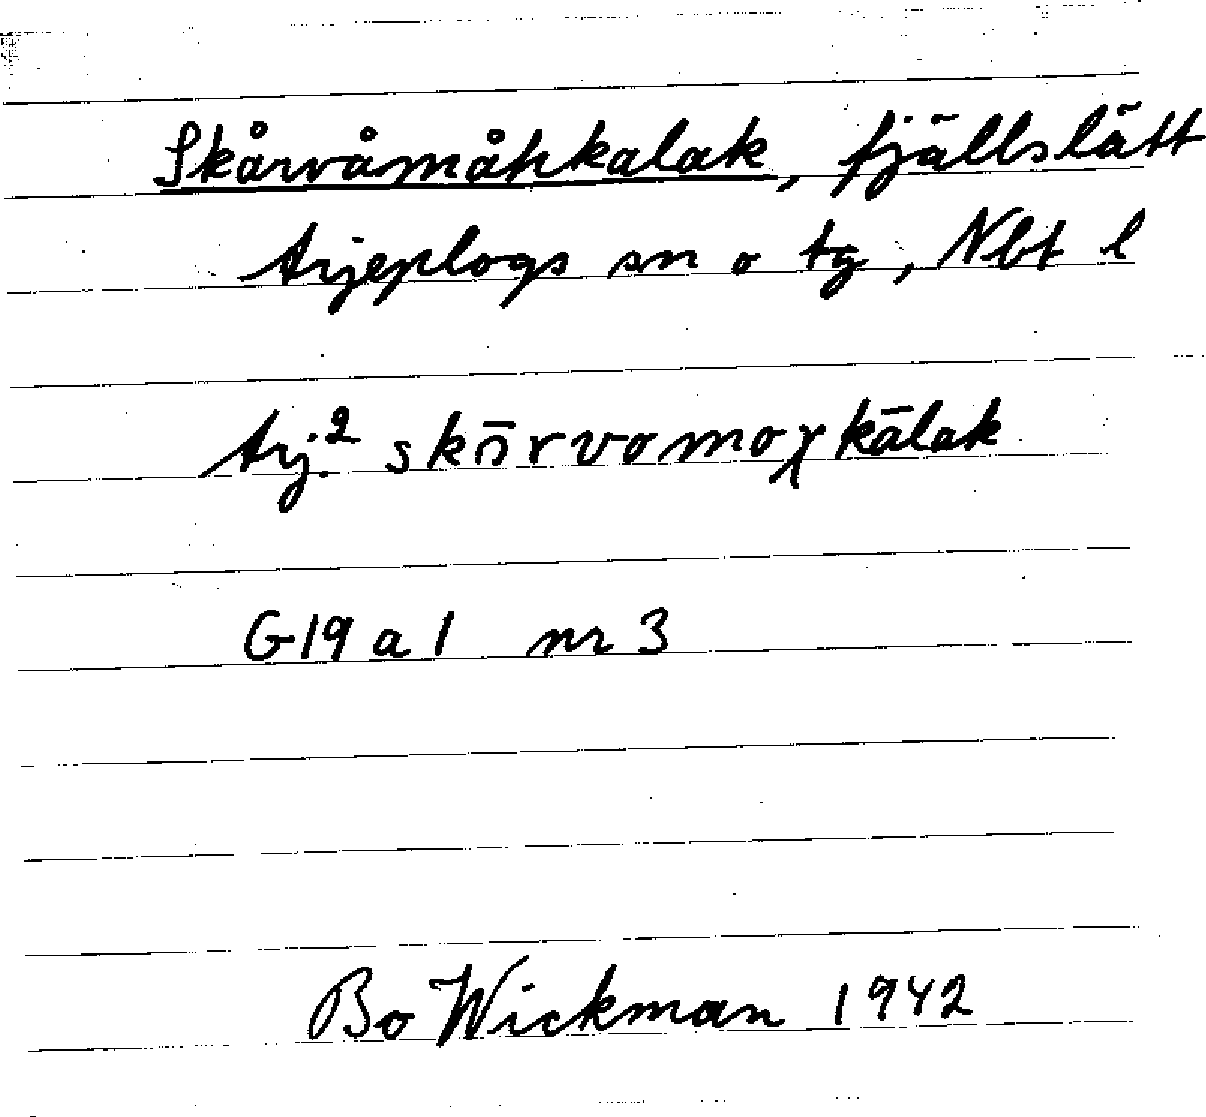 Skårvåmåhkalak, fjällslätt
Arjeplogs sn o tg, Nbt l
Arj.2 skōrvomoχkālak
G19 a 1 nr 3
Bo Wickman 1942